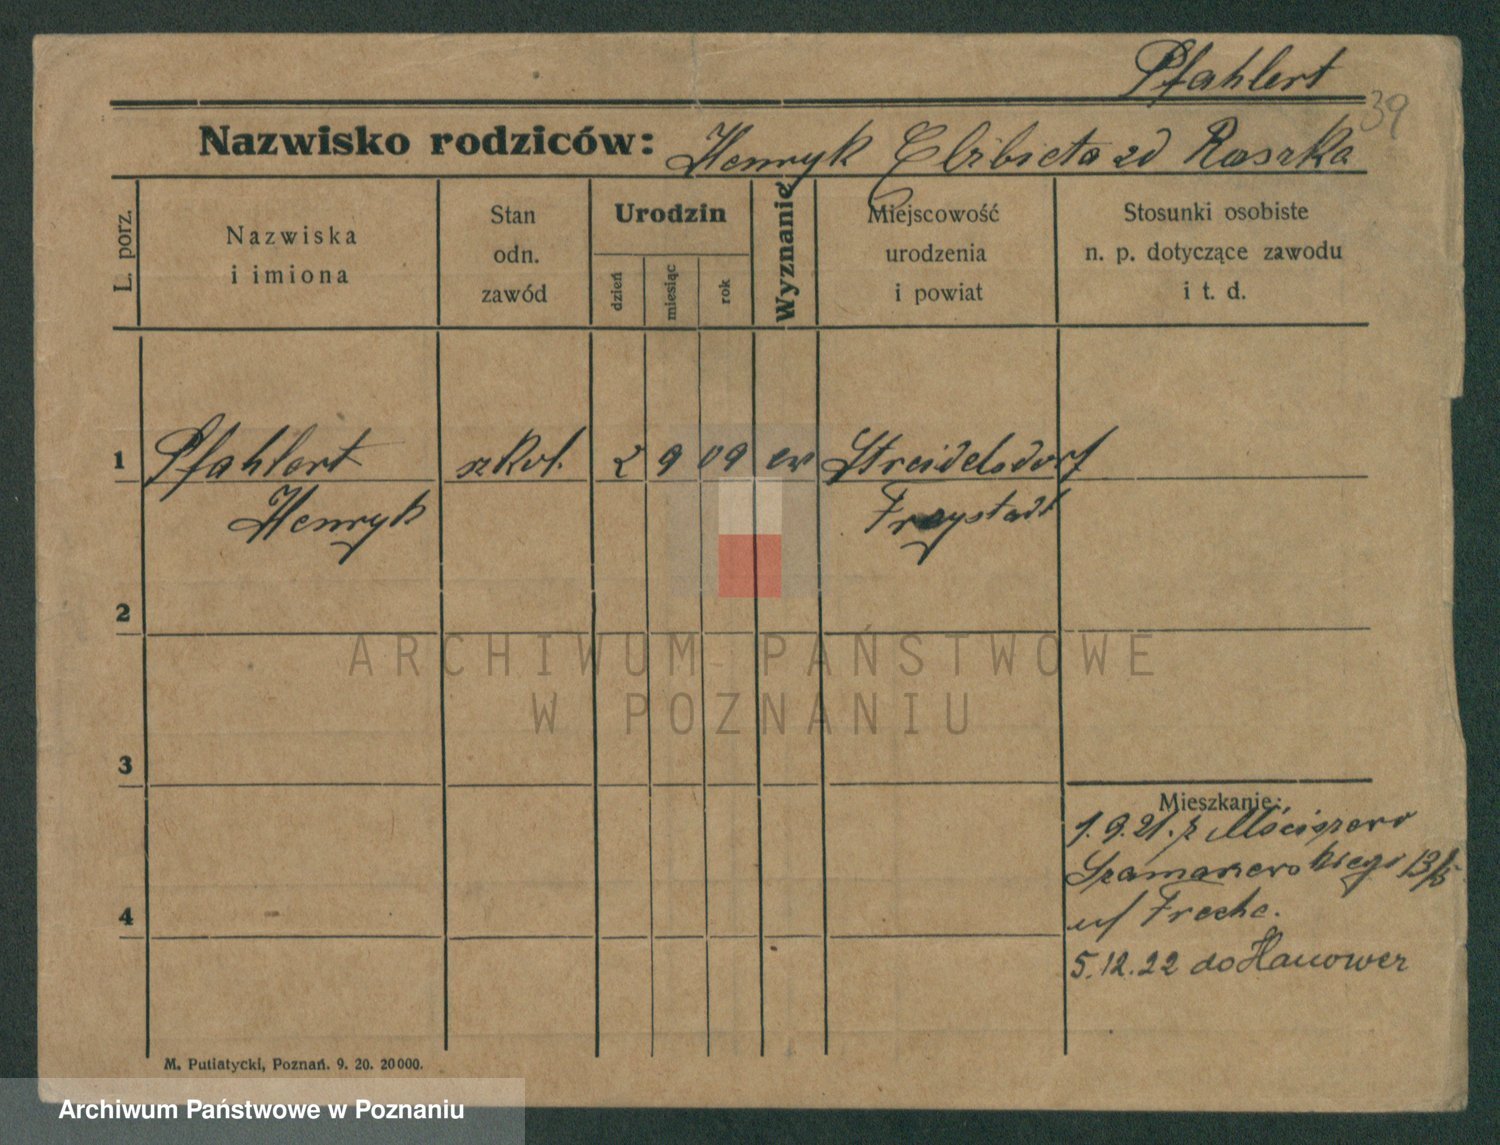 Pfahlert
39
Nazwisko rodziców: Henryk Elżbieta zd Raszka
L. porz.
Nazwiska
i imiona
Stan
odn.
zawód
Urodzin
dzień
miesiąc
rok
Wyznanie
Miejscowość
urodzenia
i powiat
Stosunki osobiste
n. p. dotyczące zawodu
i t. d.
1 Pfahlert szkol. 2 9 09 ew Streidelsdorf
Henryk Freystadt
2
ARCHIWUM PAŃSTWOWE
W POZNANIU
3
Mieszkanie:
1.9.21. z
13/5
4
Freche.
5.12.22 do Hanower
M. Putiatycki, Poznań. 9. 20. 20000.
Archiwum Państwowe w Poznaniu